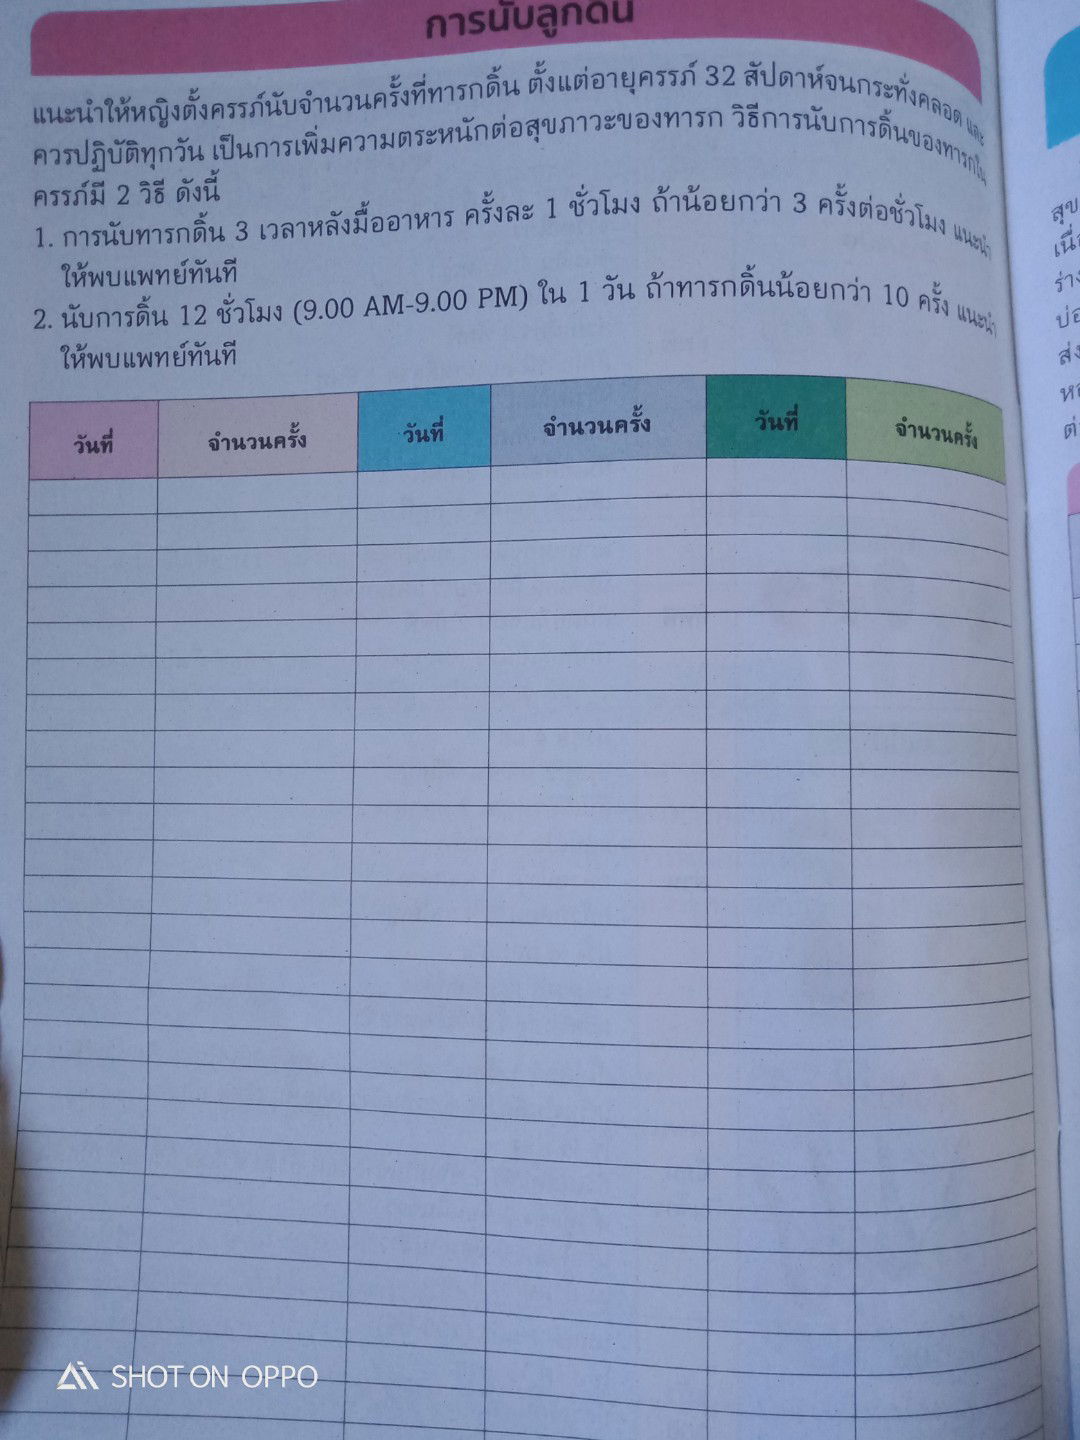 การนับลูกดิ้น
แนะนำให้หญิงตั้งครรภ์นับจำนวนครั้งที่ทารกดิ้น ตั้งแต่อายุครรภ์ 32 สัปดาห์จนกระทั่งคลอด และ
ควรปฏิบัติทุกวัน เป็นการเพิ่มความตระหนักต่อสุขภาวะของทารก วิธีการนับการดิ้นของทารกใน
ครรภ์มี 2 วิธี ดังนี้
1. การนับทารกดิ้น 3 เวลาหลังมื้ออาหาร ครั้งละ 1 ชั่วโมง ถ้าน้อยกว่า 3 ครั้งต่อชั่วโมง แนะนำ
ให้พบแพทย์ทันที
2. นับการดิ้น 12 ชั่วโมง (9.00 AM-9.00 PM) ใน 1 วัน ถ้าทารกดิ้นน้อยกว่า 10 ครั้ง แนะนำ
ให้พบแพทย์ทันที
วันที่ จำนวนครั้ง วันที่ จำนวนครั้ง วันที่ จำนวนครั้ง
SHOT ON OPPO